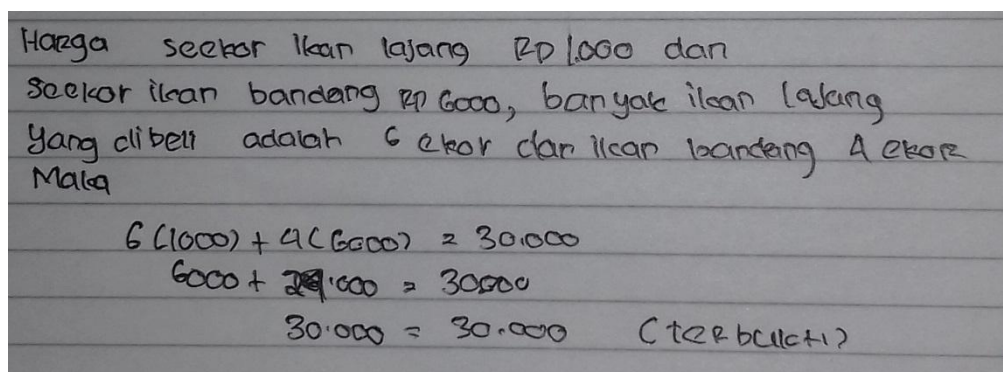 Harga seekor ikan lajang Rp 1.000 dan
seekor ikan bandeng Rp 6000, banyak ikan lajang
yang dibeli adalah 6 ekor dan ikan bandeng 4 ekor
Maka
6 (1000) + 4 (6000) = 30.000
6000 + 24.000 = 30000
30.000 = 30.000 (terbukti)